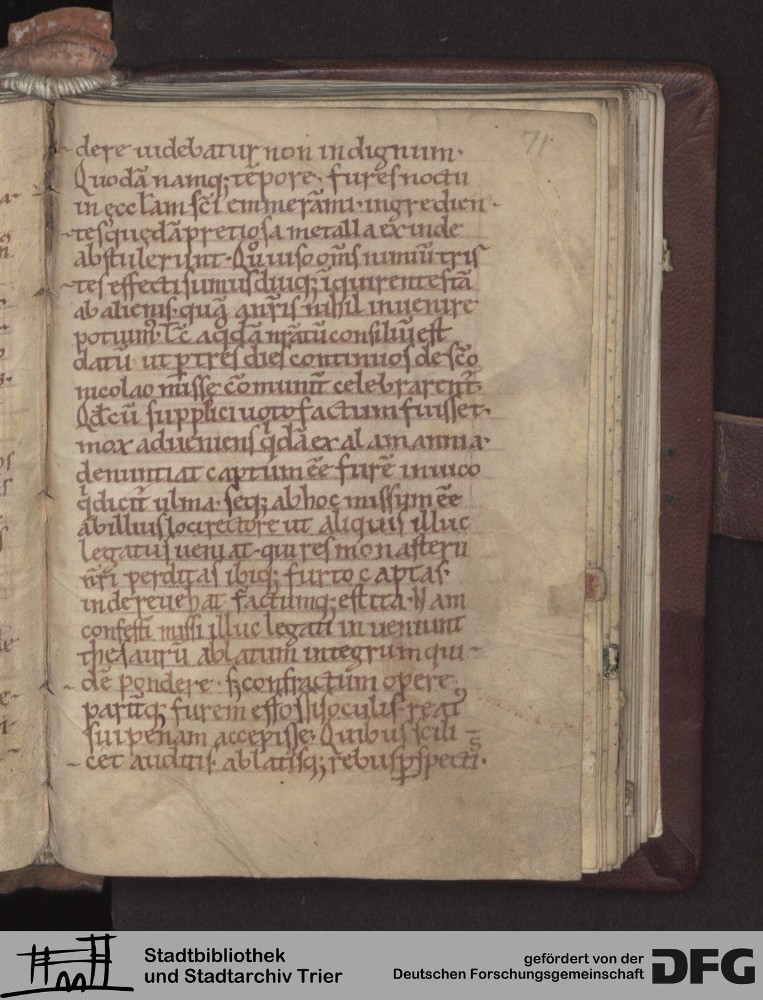 71
dere uidebatur non indignum·
Quodā namq; tēpore· fures noctu
in ęccłam sc̄i emmerāmi· ingredien-
tes quędā pretiosa metalla exinde
abstulerunt· Quo uiso om̄s nimiū tris
tes effecti sumus diuq; iquirentes tā
ab alienis quā a nr̄is nihil inuenire
potuim⁹· T̄c a qdā nr̄atū consiliū est
datū ut p tres dies continuos de sc̄o
nicolao missę cōmunit̄ celebrarent̄·
Qđ cū supplici uoto factum fuisset·
mox adueniens qdā ex alamannia·
denuntiat captum ēe furē in uico
q dicit̄ ulma· seq; ab hoc missum ēe
ab illius loci rectore ut aliquis illuc
legatus ueniat· qui res monasterii
nr̄i perditas ibiq; furto captas
inde reuehat· factumq; est ita· Nam
confessi missi illuc legati inueniunt
thesaurū ablatum integrum qui-
dē pondere· s; confractum opere
parit̄q; furem effossis oculis reat⁹
sui penam accepisse· Quibus scili-
cet auditis· ablatisq; rebus pspectis·
Stadtbibliothek
und Stadtarchiv Trier
gefördert von der
Deutschen Forschungsgemeinschaft
DFG